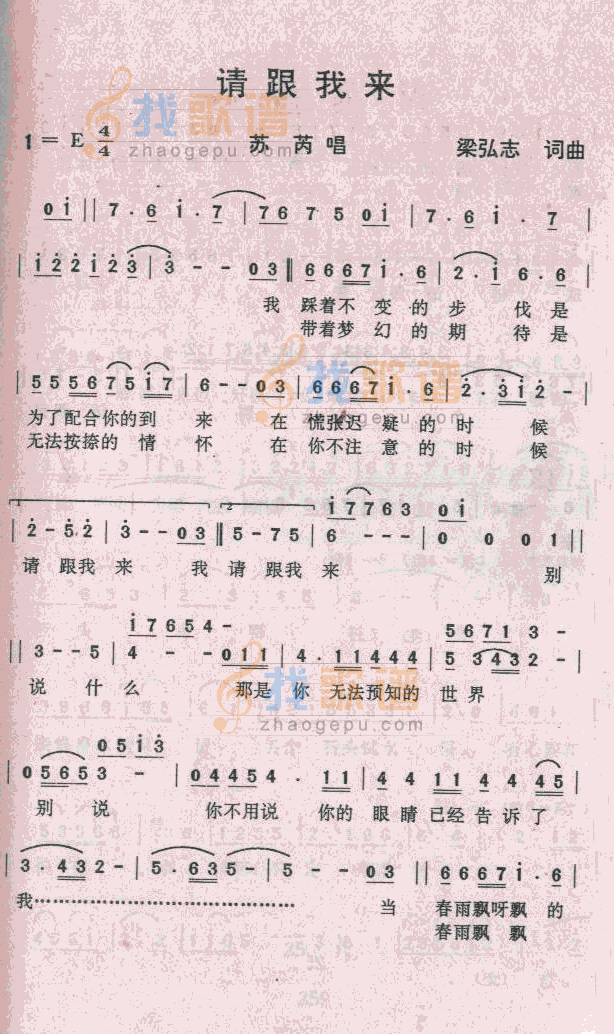 请跟我来
找歌谱
zhaogepu.com
1 = E 4/4 苏芮唱 梁弘志 词曲
0 i || 7 · 6 i · 7 | 7 6 7 5 0 i | 7 · 6 i · 7 |
| i 2 2 i 2 3 | 3 - - 0 3 || 6 6 6 7 i · 6 | 2 · i 6 · 6 |
我 踩着不 变 的 步 伐 是
带着梦 幻 的 期 待 是
| 5 5 5 6 7 5 i 7 | 6 - - 0 3 | 6 6 6 7 i · 6 | 2 · 3 i 2 - |
找歌谱
zhaogepu.com
为了配合你的到 来 在 慌张迟 疑 的 时 候
无法按捺的 情 怀 在 你不注 意 的 时 候
1 2 i 7 7 6 3 0 i
2 - 5 2 | 3 - - 0 3 || 5 - 7 5 | 6 - - - | 0 0 0 1 ||
请 跟我 来 我 请 跟我 来 别
i 7 6 5 4 - 5 6 7 1 3 -
|| 3 - - 5 | 4 - - 0 1 1 | 4 · 1 1 4 4 4 | 5 3 4 3 2 - |
找歌谱
zhaogepu.com
说 什 么 那是 你 无法预知的 世 界
0 5 i 3
| 0 5 6 5 3 - | 0 4 4 5 4 · 1 1 | 4 4 1 1 4 4 4 5 |
别 说 你不用说 你的 眼 睛 已经 告 诉 了
| 3 · 4 3 2 - | 5 · 6 3 5 - | 5 - - 0 3 || 6 6 6 7 i · 6 |
我…………………………………… 当 春雨飘呀飘 的
春雨飘 飘